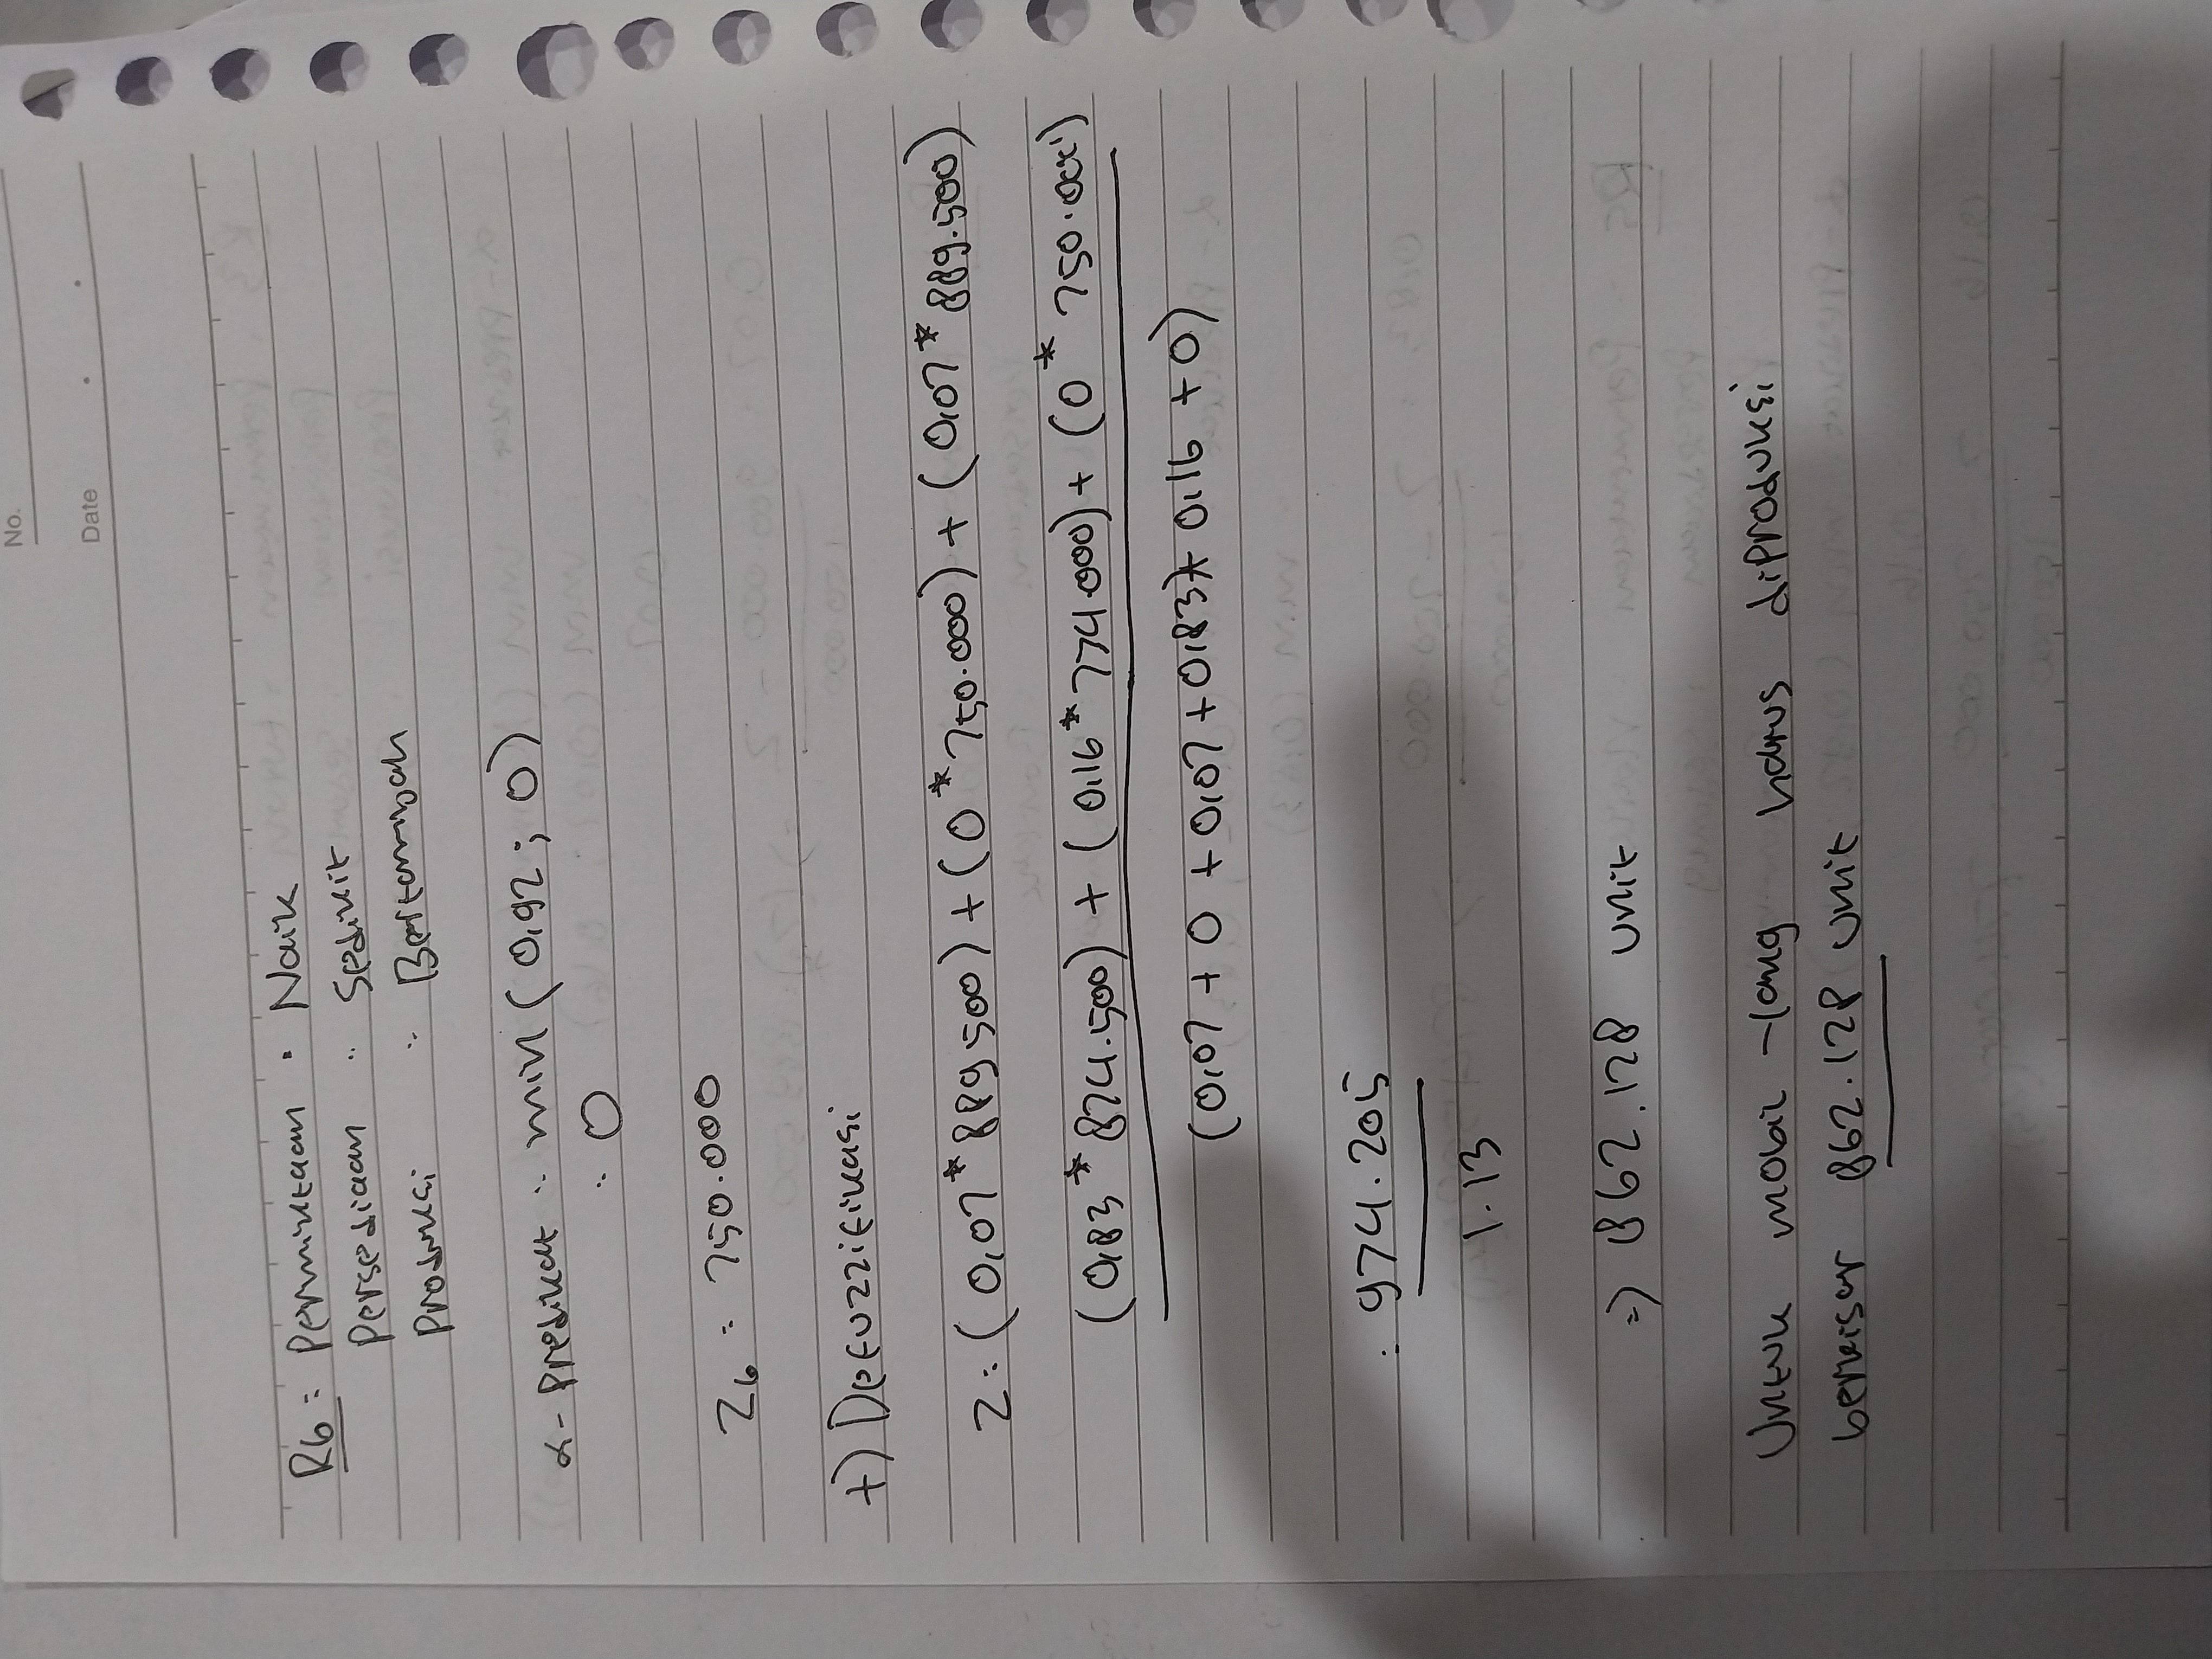 No.
Date
R6 : Permintaan : Naik
Persediaan : Sedikit
Produksi : Bertambah
α- Predikat : min ( 0,92 ; 0 )
: 0
Z6 : 750.000
+) Defuzzifikasi
Z : ( 0,07 * 889 500 ) + ( 0 * 750.000 ) + ( 0,07 * 889.500 )
( 0,83 * 874.500 ) + ( 0,16 * 774.000 ) + ( 0 * 750.000 )
( 0,07 + 0 + 0,07 + 0,83 + 0,16 + 0 )
: 974.205
1.13
=> 862.128 unit
Untuk mobil harus diproduksi
berkisar 862.128 unit